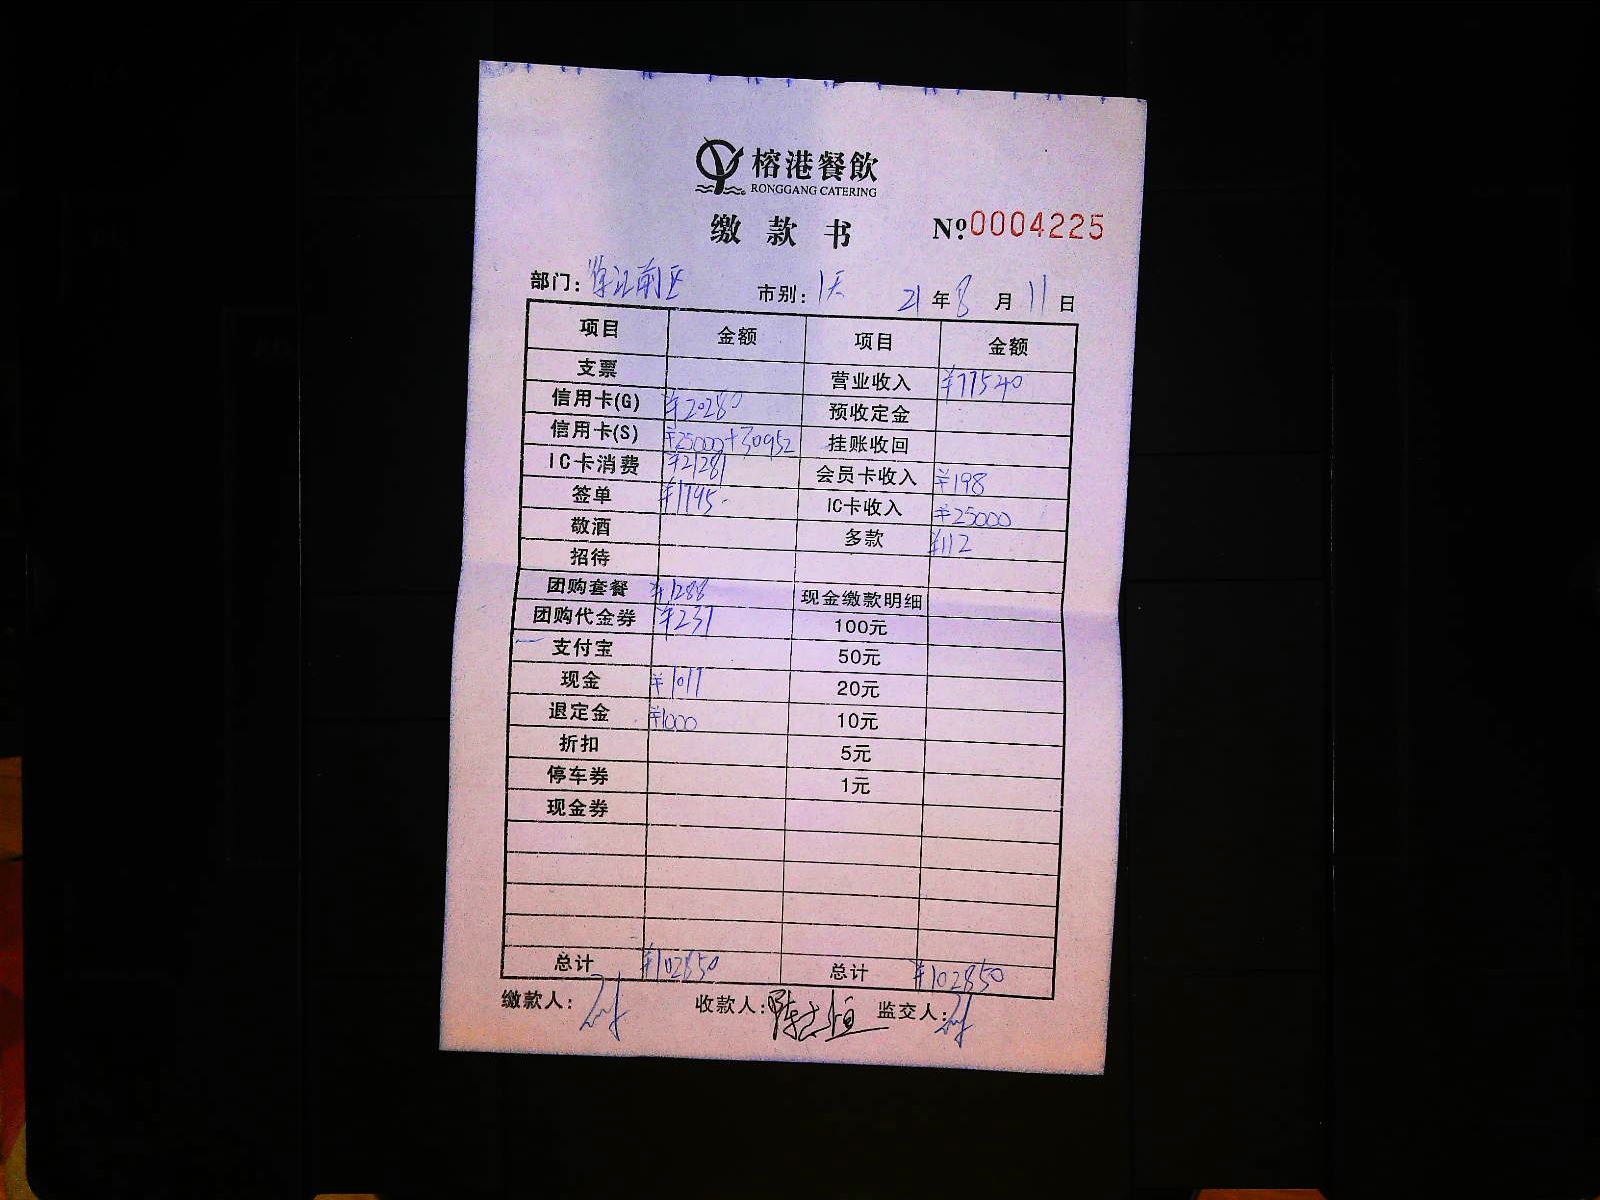 榕港餐飲
RONGGANG CATERING
缴款书 Nº 0004225
部门: 前区 市别: 1天 21年8月11日
项目 金额 项目 金额
支票 营业收入 ¥77540
信用卡(G) ¥20280 预收定金
信用卡(S) ¥25000+30952 挂账收回
IC卡消费 ¥21281 会员卡收入 ¥198
签单 ¥1795- IC卡收入 ¥25000
敬酒 多款 ¥112
招待
团购套餐 ¥1288 现金缴款明细
团购代金券 ¥237 100元
支付宝 50元
现金 ¥1017 20元
退定金 ¥1000 10元
折扣 5元
停车券 1元
现金券
总计 ¥102850 总计 ¥102850
缴款人: 收款人: 陈志恒 监交人: